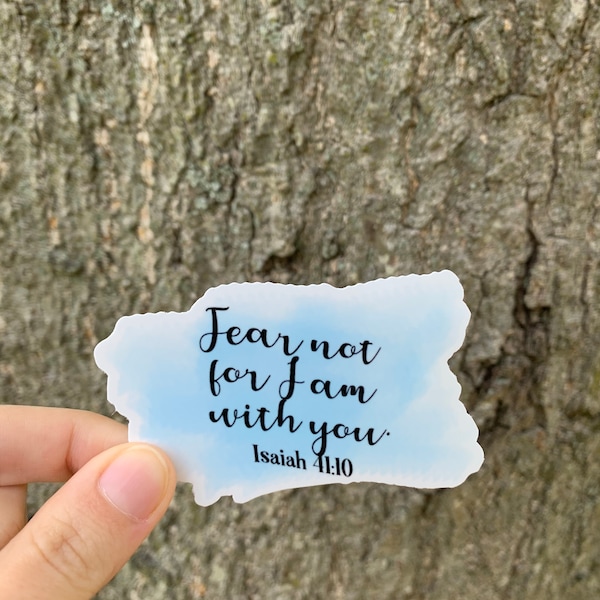 Fear not
for I am
with you.
Isaiah 41:10